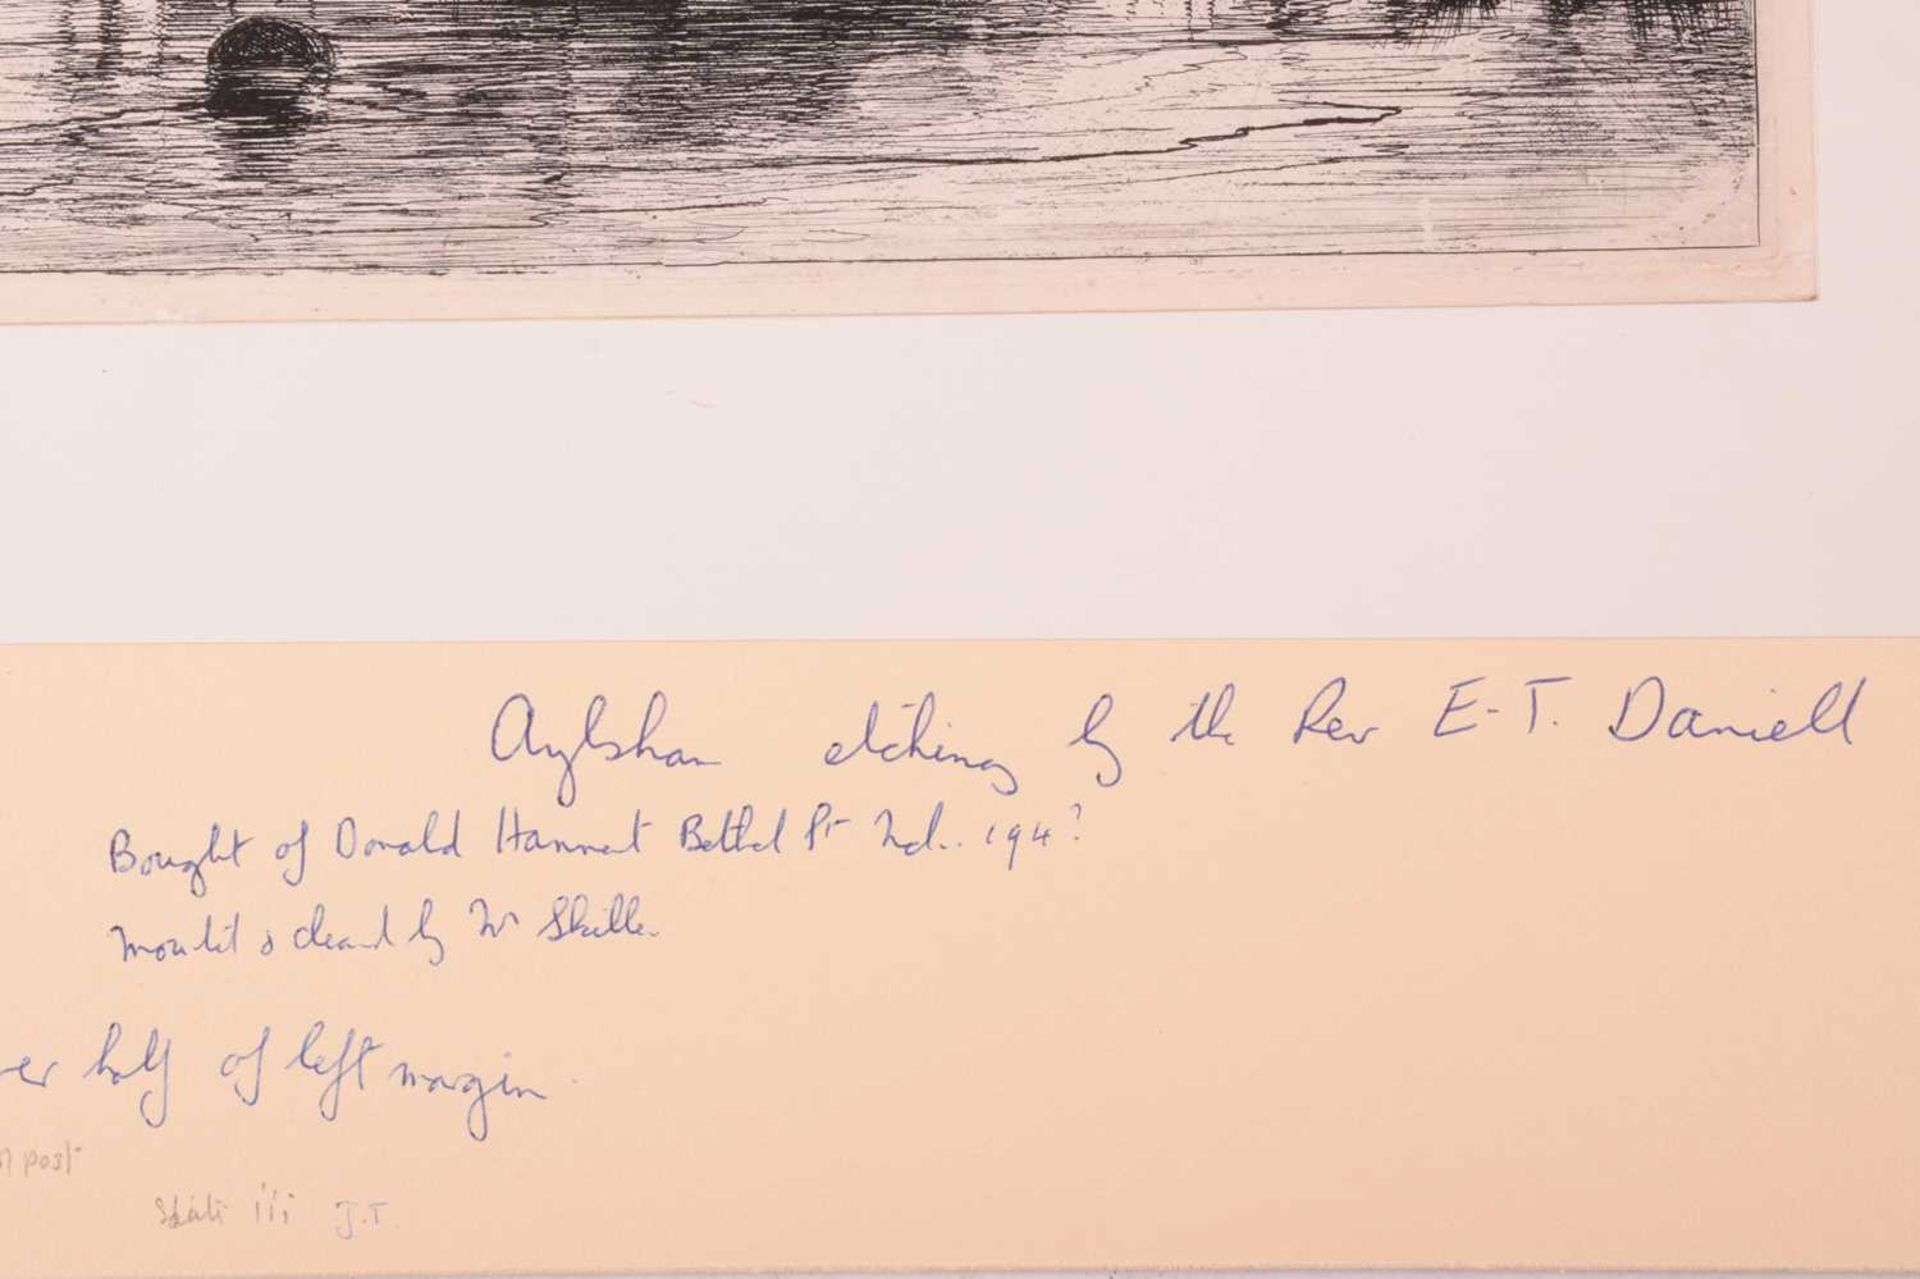 Aylsham etching by the Rev E-T. Daniell
Bought of Donald Hannant Bethel St 194?
& cleaned by Mr
half of left margin.
post
State iii J.T.